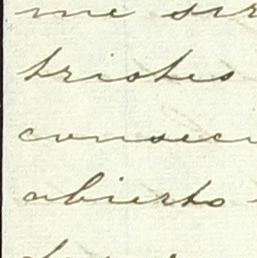 me sir
tristes
consecu
abierto